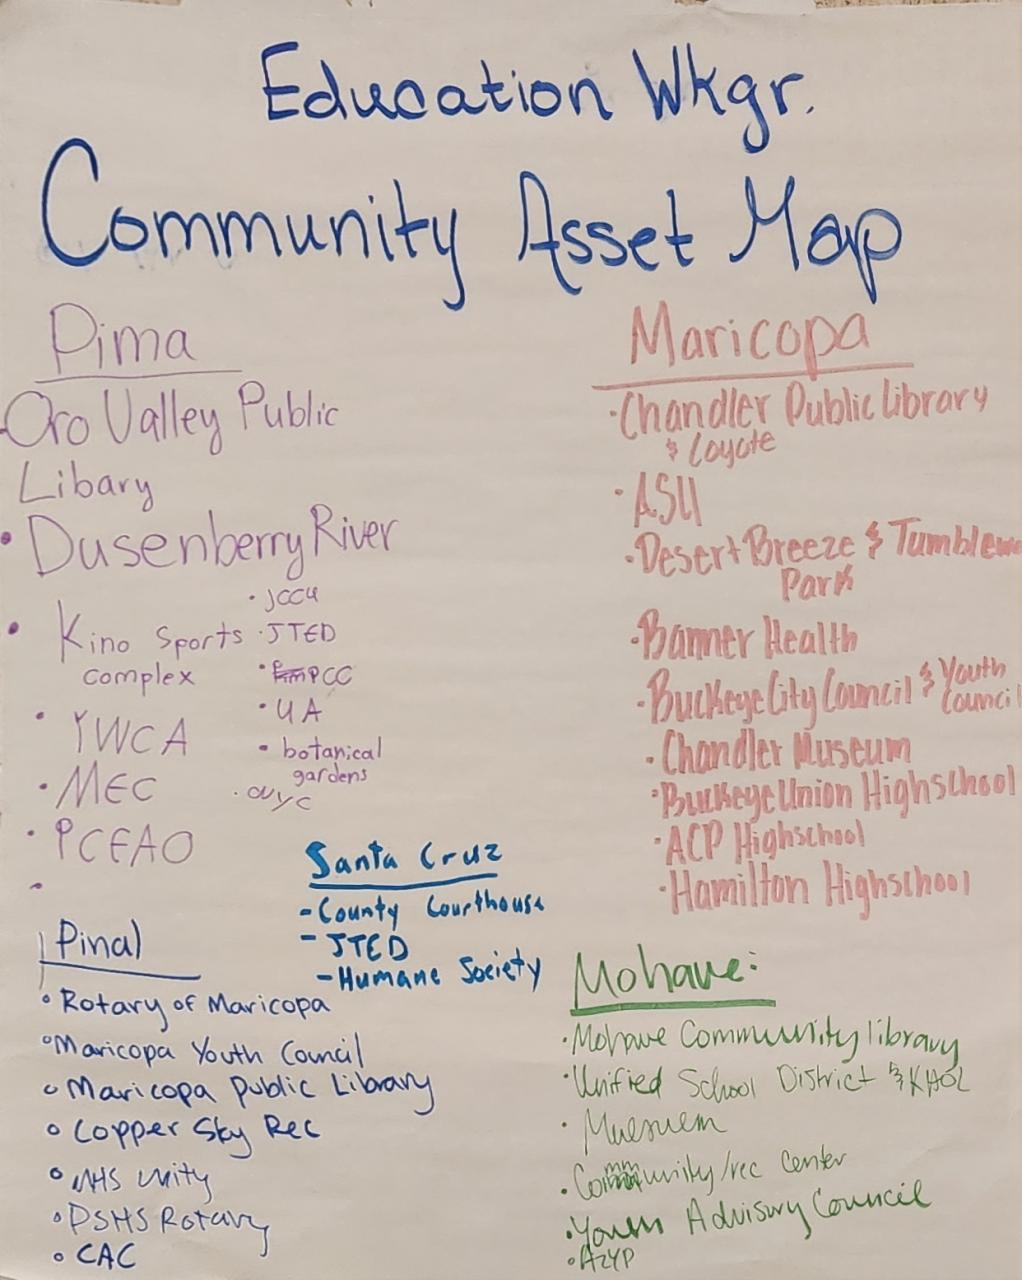 Education Wkgr.
Community Asset Map
Pima
• Oro Valley Public
Libary
• Dusenberry River
• Kino Sports
complex
• YWCA
• MEC
• PCFAO
•
• JCCU
• JTED
• PCC
• UA
• botanical
gardens
• OVYC
Maricopa
• Chandler Public Library
& Coyote
• ASU
• Desert Breeze &
Park
• Banner Health
• Buckeye City Council & Youth
Council
• Chandler Museum
• Buckeye Union Highschool
• ACP Highschool
• Hamilton Highschool
Santa Cruz
- County Courthouse
- JTED
- Humane Society
Pinal
• Rotary of Maricopa
• Maricopa Youth Council
• Maricopa Public Library
• Copper Sky Rec
• MHS Unity
• DSHS Rotary
• CAC
Mohave:
• Mohave Community library
• Unified School District & KAOL
• Muesuem
• Community/rec center
• Youth Advisory Council
• AZYP